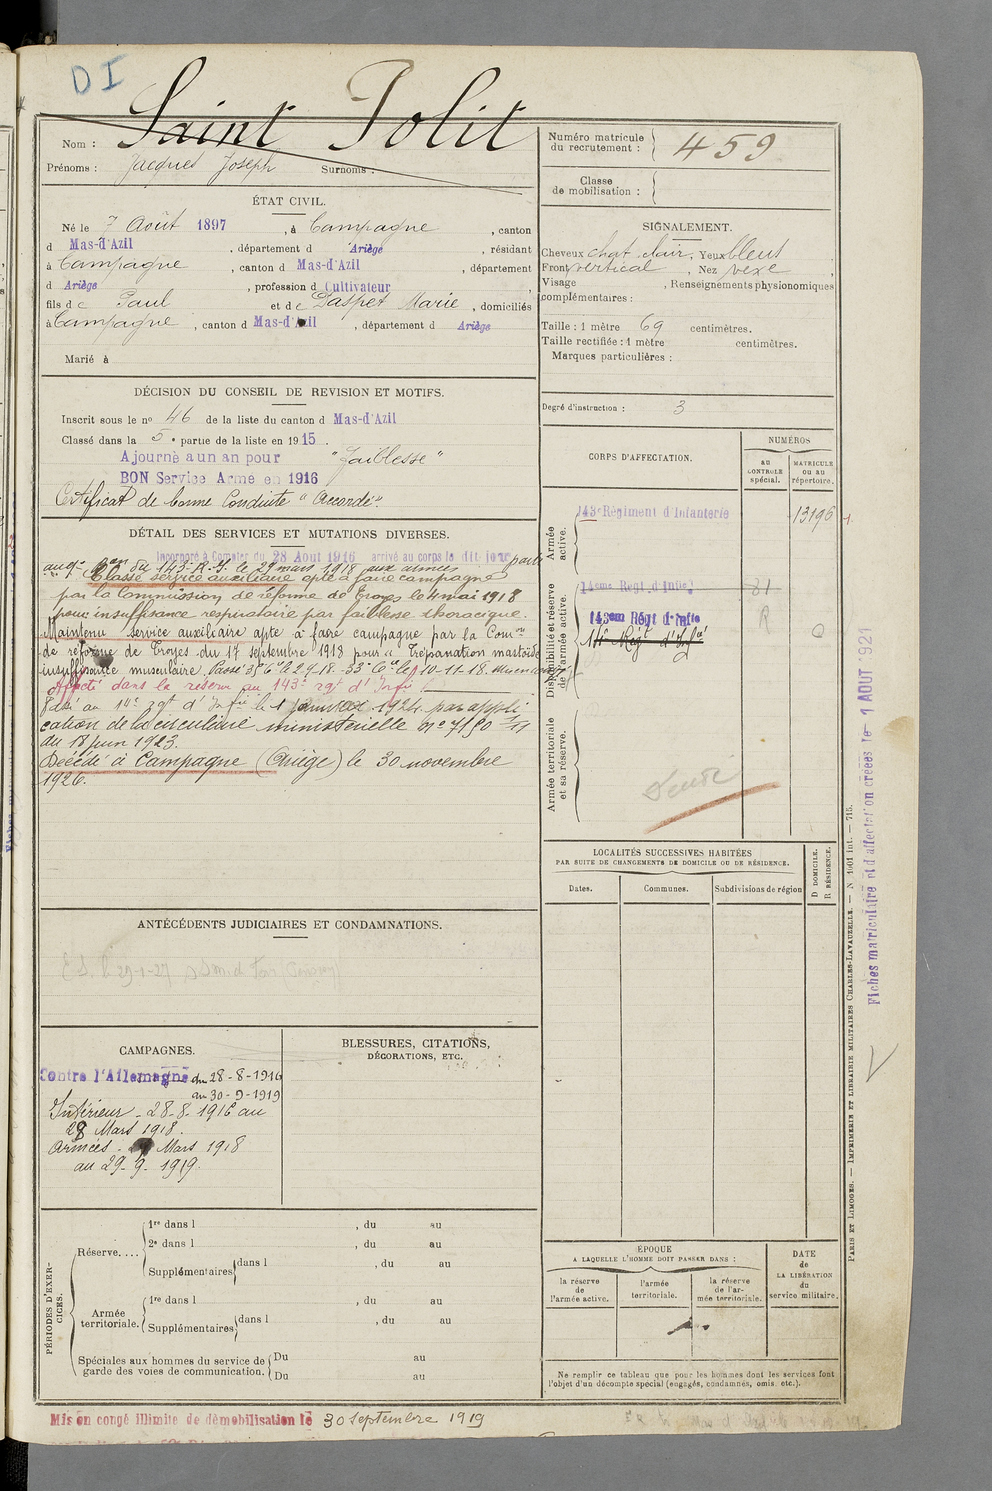 D I
Saint Polit
Nom :
Prénoms : Jacques Joseph Surnoms :
Numéro matricule
du recrutement : 459
Classe
de mobilisation :
ÉTAT CIVIL.
Né le 7 Août 1897, à Campagne, canton
d Mas-d'Azil, département d Ariège, résidant
à Campagne, canton d Mas-d'Azil, département
d Ariège, profession d Cultivateur
fils de Paul et de Daspet Marie, domiciliés
à Campagne, canton d Mas-d'Azil, département d Ariège
Marié à
SIGNALEMENT.
Cheveux chat. clair, Yeux bleus
Front vertical, Nez vexe,
Visage , Renseignements physionomiques
complémentaires :
Taille : 1 mètre 69 centimètres.
Taille rectifiée : 1 mètre centimètres.
Marques particulières :
DÉCISION DU CONSEIL DE REVISION ET MOTIFS.
Inscrit sous le no 46 de la liste du canton d Mas-d'Azil
Classé dans la 5e partie de la liste en 1915.
Ajourné a un an pour "faiblesse"
BON Service Armé en 1916
Certificat de bonne Conduite "Accordé".
Degré d'instruction : 3
DÉTAIL DES SERVICES ET MUTATIONS DIVERSES.
Incorporé à Compter du 28 Aout 1916 arrivé au corps le dit jour
du 143e R.I. le 29 mars 1918 aux armées
Classé service auxiliaire apte à faire campagne
par la Commission de réforme de Troyes le 4 mai 1918
pour insuffisance respiratoire par faiblesse thoracique.
Maintenu service auxiliaire apte à faire campagne par la Comon
de réforme de Troyes du 17 septembre 1918 pour "Trépanation mastoïde
insuffisance musculaire. Passé
Affecté dans la réserve au 143e rgt d'Infie
Passé au 14e rgt d'Infie le 1 janvier 1924 par appli
cation de la circulaire ministérielle no 7150 1/11
du 18 juin 1923.
Décédé à Campagne (Ariège) le 30 novembre
1926.
CORPS D'AFFECTATION.
NUMÉROS
au
CONTROLE
spécial.
MATRICULE
ou au
répertoire.
Armée
active.
143e Régiment d'Infanterie 13196
Disponibilité et réserve
de l'armée active.
14eme Régt d'Infie 81
143em Régt d'Infie R
14e Régt d'Infie 0
Armée territoriale
et sa réserve.
Fiches matriculaire et d'affectation créées le 1 AOUT 1921
LOCALITÉS SUCCESSIVES HABITÉES
PAR SUITE DE CHANGEMENTS DE DOMICILE OU DE RÉSIDENCE.
Dates. Communes. Subdivisions de région
D DOMICILE.
R RÉSIDENCE.
ANTÉCÉDENTS JUDICIAIRES ET CONDAMNATIONS.
CAMPAGNES.
Contre l'Allemagne du 28-8-1916
au 30-9-1919
Intérieur - 28-8-1916 au
28 Mars 1918.
Armées - Mars 1918
au 29-9-1919.
BLESSURES, CITATIONS,
DÉCORATIONS, ETC.
PÉRIODES D'EXER-
CICES.
Réserve....
1re dans l , du au
2e dans l , du au
Supplémentaires dans l , du au
Armée
territoriale.
1re dans l , du au
Supplémentaires dans l , du au
Spéciales aux hommes du service de
garde des voies de communication.
Du au
Du au
ÉPOQUE
A LAQUELLE L'HOMME DOIT PASSER DANS :
la réserve
de
l'armée active.
l'armée
territoriale.
la réserve
de l'ar-
mée territoriale.
DATE
de
LA LIBÉRATION
du
service militaire.
Ne remplir ce tableau que pour les hommes dont les services font
l'objet d'un décompte spécial (engagés, condamnés, omis, etc.).
PARIS ET LIMOGES. — IMPRIMERIE ET LIBRAIRIE MILITAIRES CHARLES-LAVAUZELLE. — N 1001 int. — 715.
Mis en congé illimité de démobilisation le 30 septembre 1919